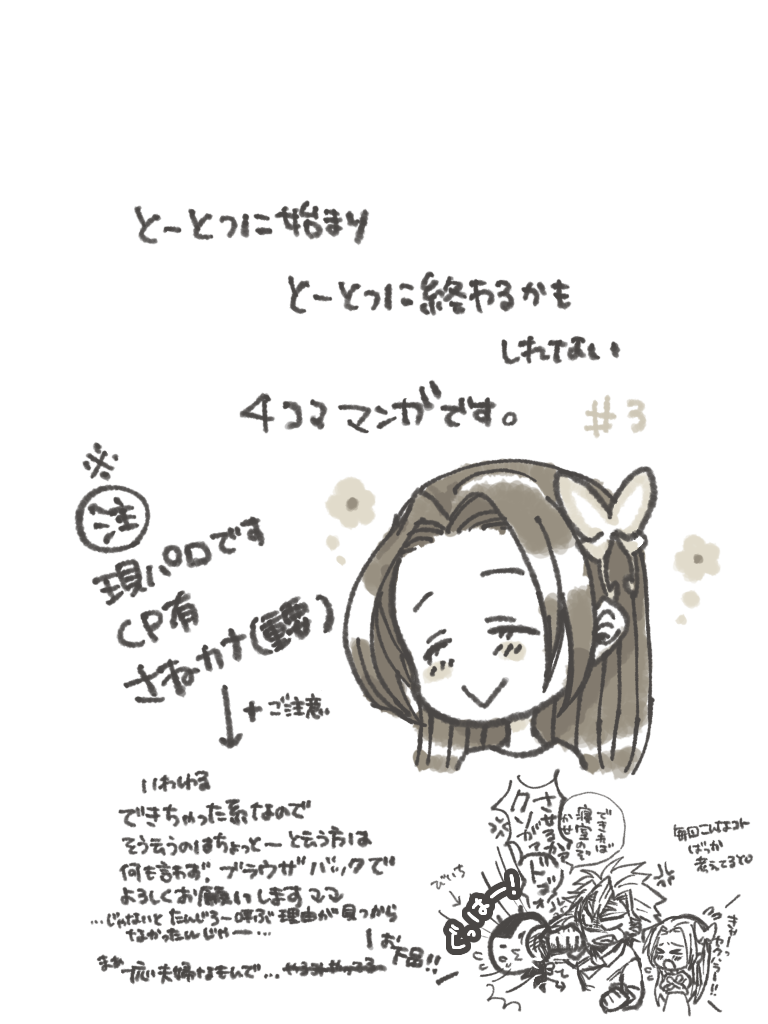 とーとつに始まり
とーとつに終わるかも
しれてない
4コママンガです。
#3
※
注
現パロです
CP有
さねカナ(重要)
↓+ご注意。
いわゆる
できちゃった系なので
そう云うのはちょっと〜と云う方は
何も言わず、ブラウザバックで
よろしくお願いしますママ
…じゃないとたんじろ〜呼ぶ理由が見つから
なかったんじゃー…
まぁ
夫婦なもんで…
お下品!!
できれば
寝室ので
させるか
クソがァ
ドゴォ
びいち
ぐっはー!
毎回こんなコト
ばっか
考えてるよ
きゃーっ